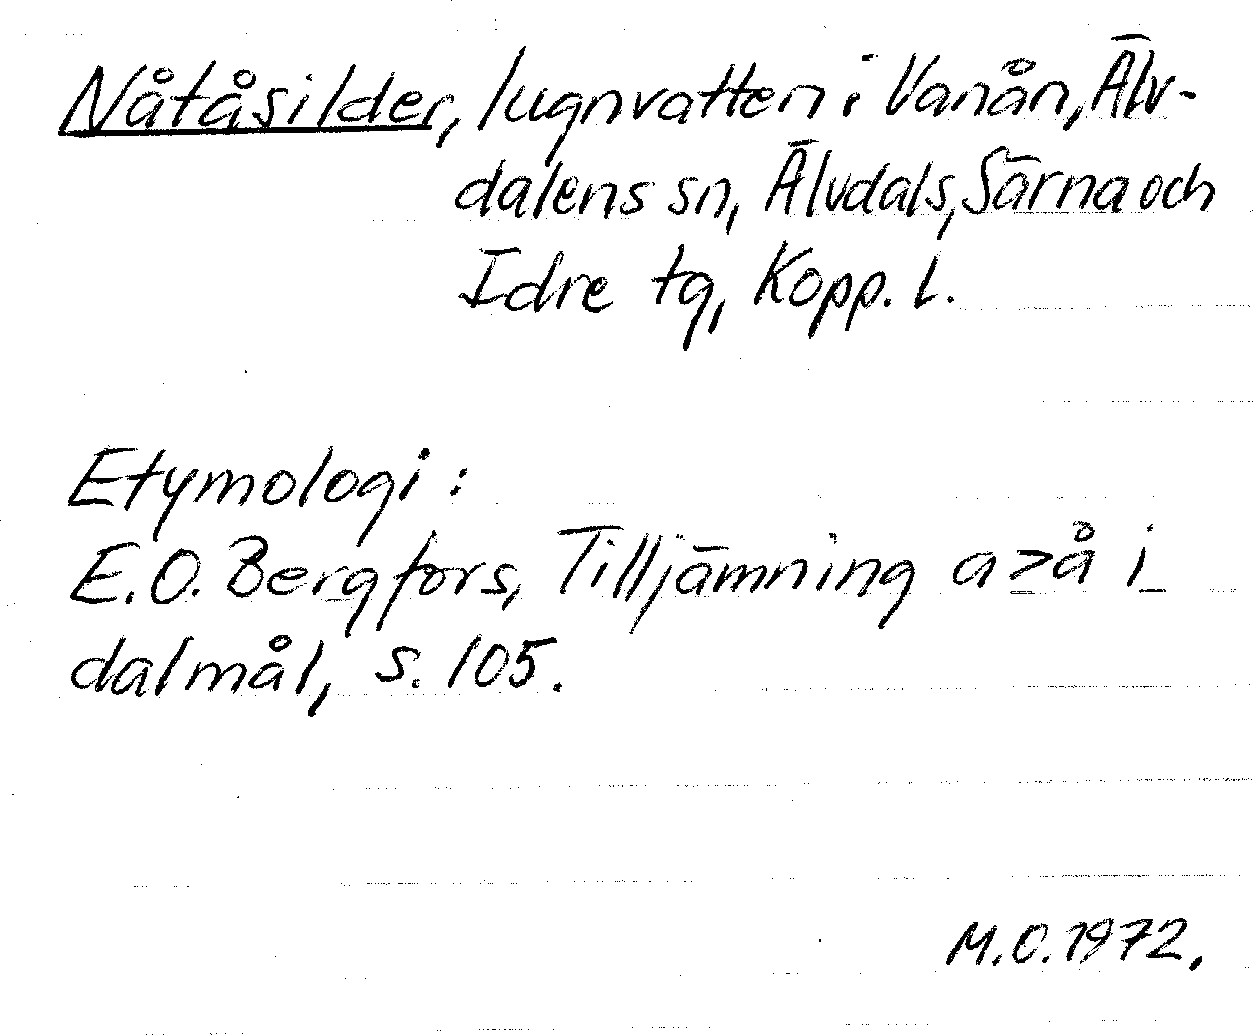 Nåtåsilder, lugnvatten i Vanån, Älv-
dalens sn, Älvdals, Särna och
Idre tg, Kopp. l.
Etymologi:
E.O. Bergfors, Tilljämning a>å i
dalmål, s. 105.
M.O. 1972.